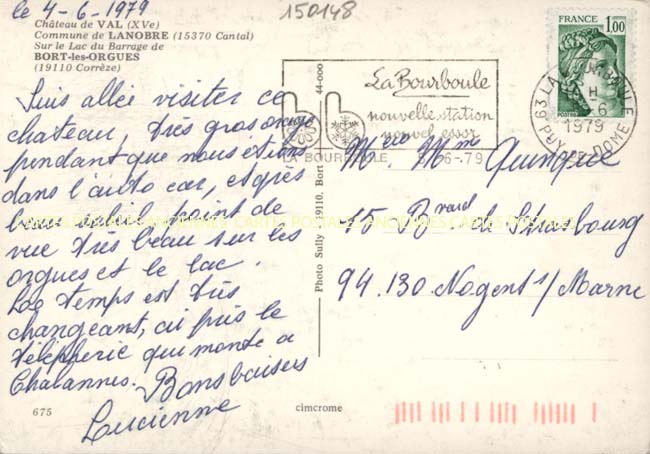 le 4-6-1979
150148
Château de VAL (XVe)
Commune de LANOBRE (15370 Cantal)
Sur le Lac du Barrage de
BORT-les-ORGUES
(19110 Corrèze)
Suis allée visiter ce
chateau, très gros orage
pendant que nous etions
dans l'auto car, et après
beau soleil point de
vue très beau sur les
orgues et le lac.
Le temps est très
changeant, ai pris le
téléphérie qui monte a
Charlannes. Bons baisers
Lucienne
675
cimcrome
Photo Sully 19110. Bort
44-000
La Bourboule
nouvelle station
nouvel essor
LA BOURBOULE
6-79
FRANCE
1,00
POSTES
63 LA BOURBOULE
H
-6
1979
PUY DE DOME
Mr et Mme
15 Bvard de Strasbourg
94.130 Nogent s/ Marne
CARTES POSTALES ANCIENNES CARTES POSTALES ANCIENNES CARTES POSTALES